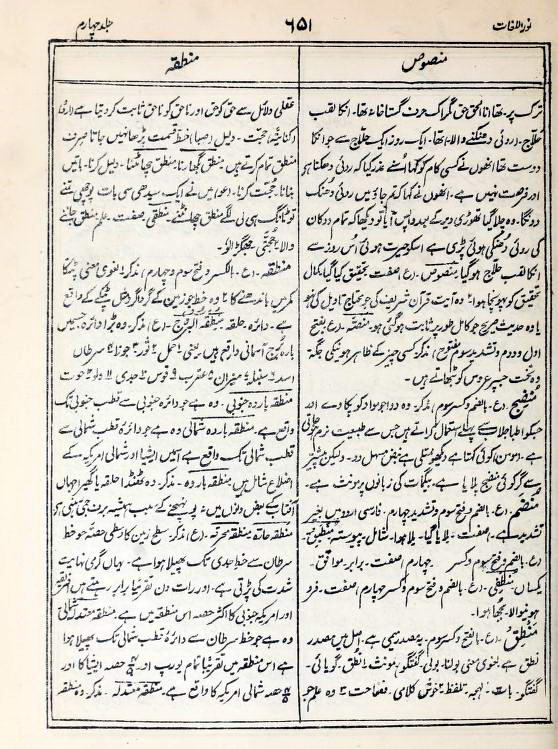 نور اللغات
۶۵۱
جلد چہارم
منصوص
منطقہ
ترک پر۔ تھا انا الحق حق مگر اک حرف گستاخانہ تھا۔ انکا لقب
حلّاج۔ (روئی دھنکنے والا) تھا۔ ایک روز ایک حلّاج سے جو انکا
دوست تھا انھوں نے کسی کام کو کہا اُسنے عذر کیا کہ روئی دھنکنا ہو
اور فرصت نہیں ہے۔ انھوں نے کہا کہ تم جاؤ میں روئی دھنک
دونگا۔ وہ چلا گیا تھوڑی دیر کے بعد واپس آیا تو دیکھا کہ تمام دوکان
کی روئی دھنکی ہوئی پڑی ہے اسکو حیرت ہوئی اُس روز سے
انکا لقب حلّاج ہو گیا۔ منصوص۔ (ع) صفت۔ تحقیق کیا گیا۔ کمال
تحقیق کو پہونچا ہوا ۲ وہ آیت قرآن شریف کی جو محتاج تاویل کی نہو
یا وہ حدیث صریح جو کامل طور پر ثابت ہو گئی ہو۔ منصّہ۔ (ع) بفتح
اول و دوم و تشدید سوم مفتوح) مذکر۔ کسی چیز کے ظاہر ہونیکی جگہ
وہ تخت جسپر عروس کو بٹھاتے ہیں۔
مُنضِج۔ (ع۔ بالضم وکسر سوم) مذکر۔ وہ دوا جو مواد کو پکا دے اور
جسکو اطبا جلاب سے پہلے استعمال کراتے ہیں جس سے طبیعت نرم ہو جاتی
ہے۔ مومن کوئی کہتا ہے دیکھو مبتلی ہے نبض مسہل دو۔ ولیکن پیشتر
سے گر کوئی منضج پلایا ہے۔ بیگمات کی زبانوں پر مونث ہے۔
مُنضَم۔ (ع۔ بالضم و فتح سوم و تشدید چہارم۔ فارسی اردو میں بغیر
تشدید ہے) صفت۔ ملایا گیا۔ ملا ہوا۔ شامل۔ پیوستہ۔ منطبق۔
(ع۔ بالضم و فتح سوم وکسر چہارم) صفت۔ برابر۔ موافق۔
یکساں۔ منطفی۔ (ع۔ بالضم و فتح سوم وکسر چہارم) صفت۔ فرو
ہونیوالا۔ بجھا ہوا۔
مَنطِق۔ (ع۔ بالفتح وکسر سوم۔ یہ مصدر میمی ہے۔ اصل میں مصدر
نطق ہے۔ بغوی معنی بولنا۔ بولی۔ گفتگو) مونث ۱ نطق۔ گویائی۔
گفتگو۔ بات۔ لہجہ۔ تلفظ ۲ خوش کلامی۔ فصاحت ۳ وہ علم جو
عقلی دلائل سے حق کو حق اور ناحق کو ناحق ثابت کر دیتا ہے
کنایۃً حجت۔ دلیل (صبا) خط قسمت پڑھا نہیں جاتا صرف
منطق تمام کرتے ہیں۔ منطق بگھارنا۔ منطق چھانٹنا۔ دلیل کرنا۔ باتیں
بنانا۔ حجت کرنا۔ (عو) میں نے ایک سیدھی سی بات پوچھی تھی
تو ٹانگ ہی لی لگے منطق چھانٹنے۔ منطقی۔ صفت۔ علم منطق جاننے
والا ۲ حُجّتی۔ جھگڑالو۔
منطقہ۔ (ع۔ بالکسر و فتح سوم و چہارم) مذکر ۱ لغوی معنی پٹکا
کمر میں باندھنے کا ۲ وہ خط جو زمین کے گرداگرد مثل پٹکے کے واقع
ہے۔ دائرہ۔ حلقہ۔ منطقۃ البروج۔ (ع) مذکر۔ وہ بڑا دائرہ جسمیں
بارہ بُرج آسمانی واقع ہیں۔ یعنی ۱ حمل ۲ ثور ۳ جوزا ۴ سرطان
۵ اسد ۶ سنبلہ ۷ میزان ۸ عقرب ۹ قوس ۱۰ جدی ۱۱ دلو ۱۲ حوت
منطقہ باردہ جنوبی۔ وہ ہے جو دائرہ جنوبی سے قطب جنوبی تک
واقع ہے۔ منطقہ باردہ شمالی وہ ہے جو دائرہ قطب شمالی سے
قطب شمالی تک واقع ہے اسمیں ایشیا اور شمالی امریکہ کے
اضلاع شامل ہیں منطقہ باردہ۔ مذکر۔ وہ ٹھنڈا حلقہ یا گھیرا جہاں
آفتاب کے بعض دنوں میں نہ پہونچنے کے سبب ہمیشہ برف جمی رہتی ہے
منطقہ حارّہ۔ منطقہ محرقہ۔ (ع) مذکر۔ سطح زمین کا وسطی حصّہ جو خط
سرطان سے خط جدی تک پھیلا ہوا ہے۔ یہاں گرمی نہایت
شدت کی پڑتی ہے۔ اور رات دن تقریباً برابر رہتے ہیں افریقہ
اور امریکہ جنوبی کا اکثر حصہ اس منطقہ میں ہے۔ منطقہ معتدلہ شمالی
وہ ہے جو خط سرطان سے دائرہ قطب شمالی تک پھیلا ہوا
ہے اس منطقہ میں تقریباً تمام یورپ اور حصہ ایشیا کا اور
حصہ شمالی امریکہ کا واقع ہے۔ منطقہ معتدلہ۔ مذکر۔ وہ منطقہ